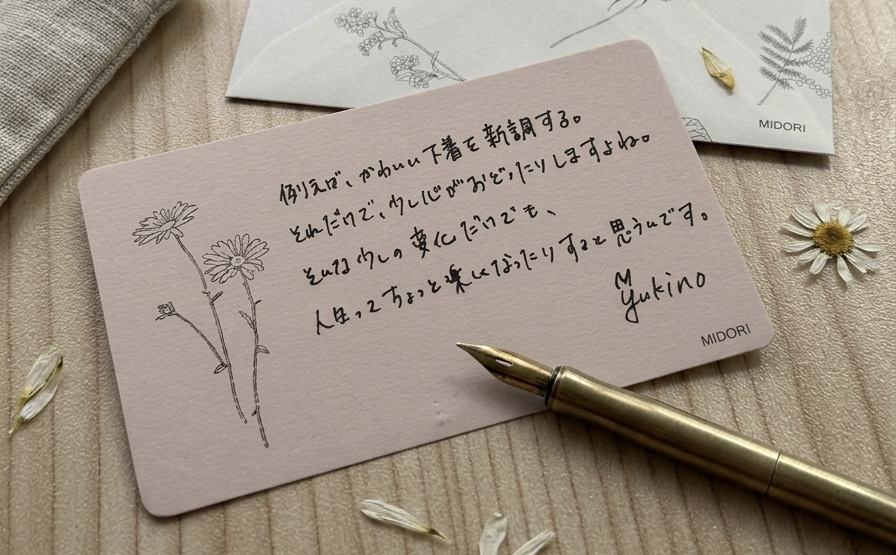 MIDORI
例えば、かわいい下着を新調する。
それだけで、少し心がおどったりしますよね。
そんな少しの変化だけでも、
人生ってちょっと楽しくなったりすると思うんです。
Yukino
MIDORI